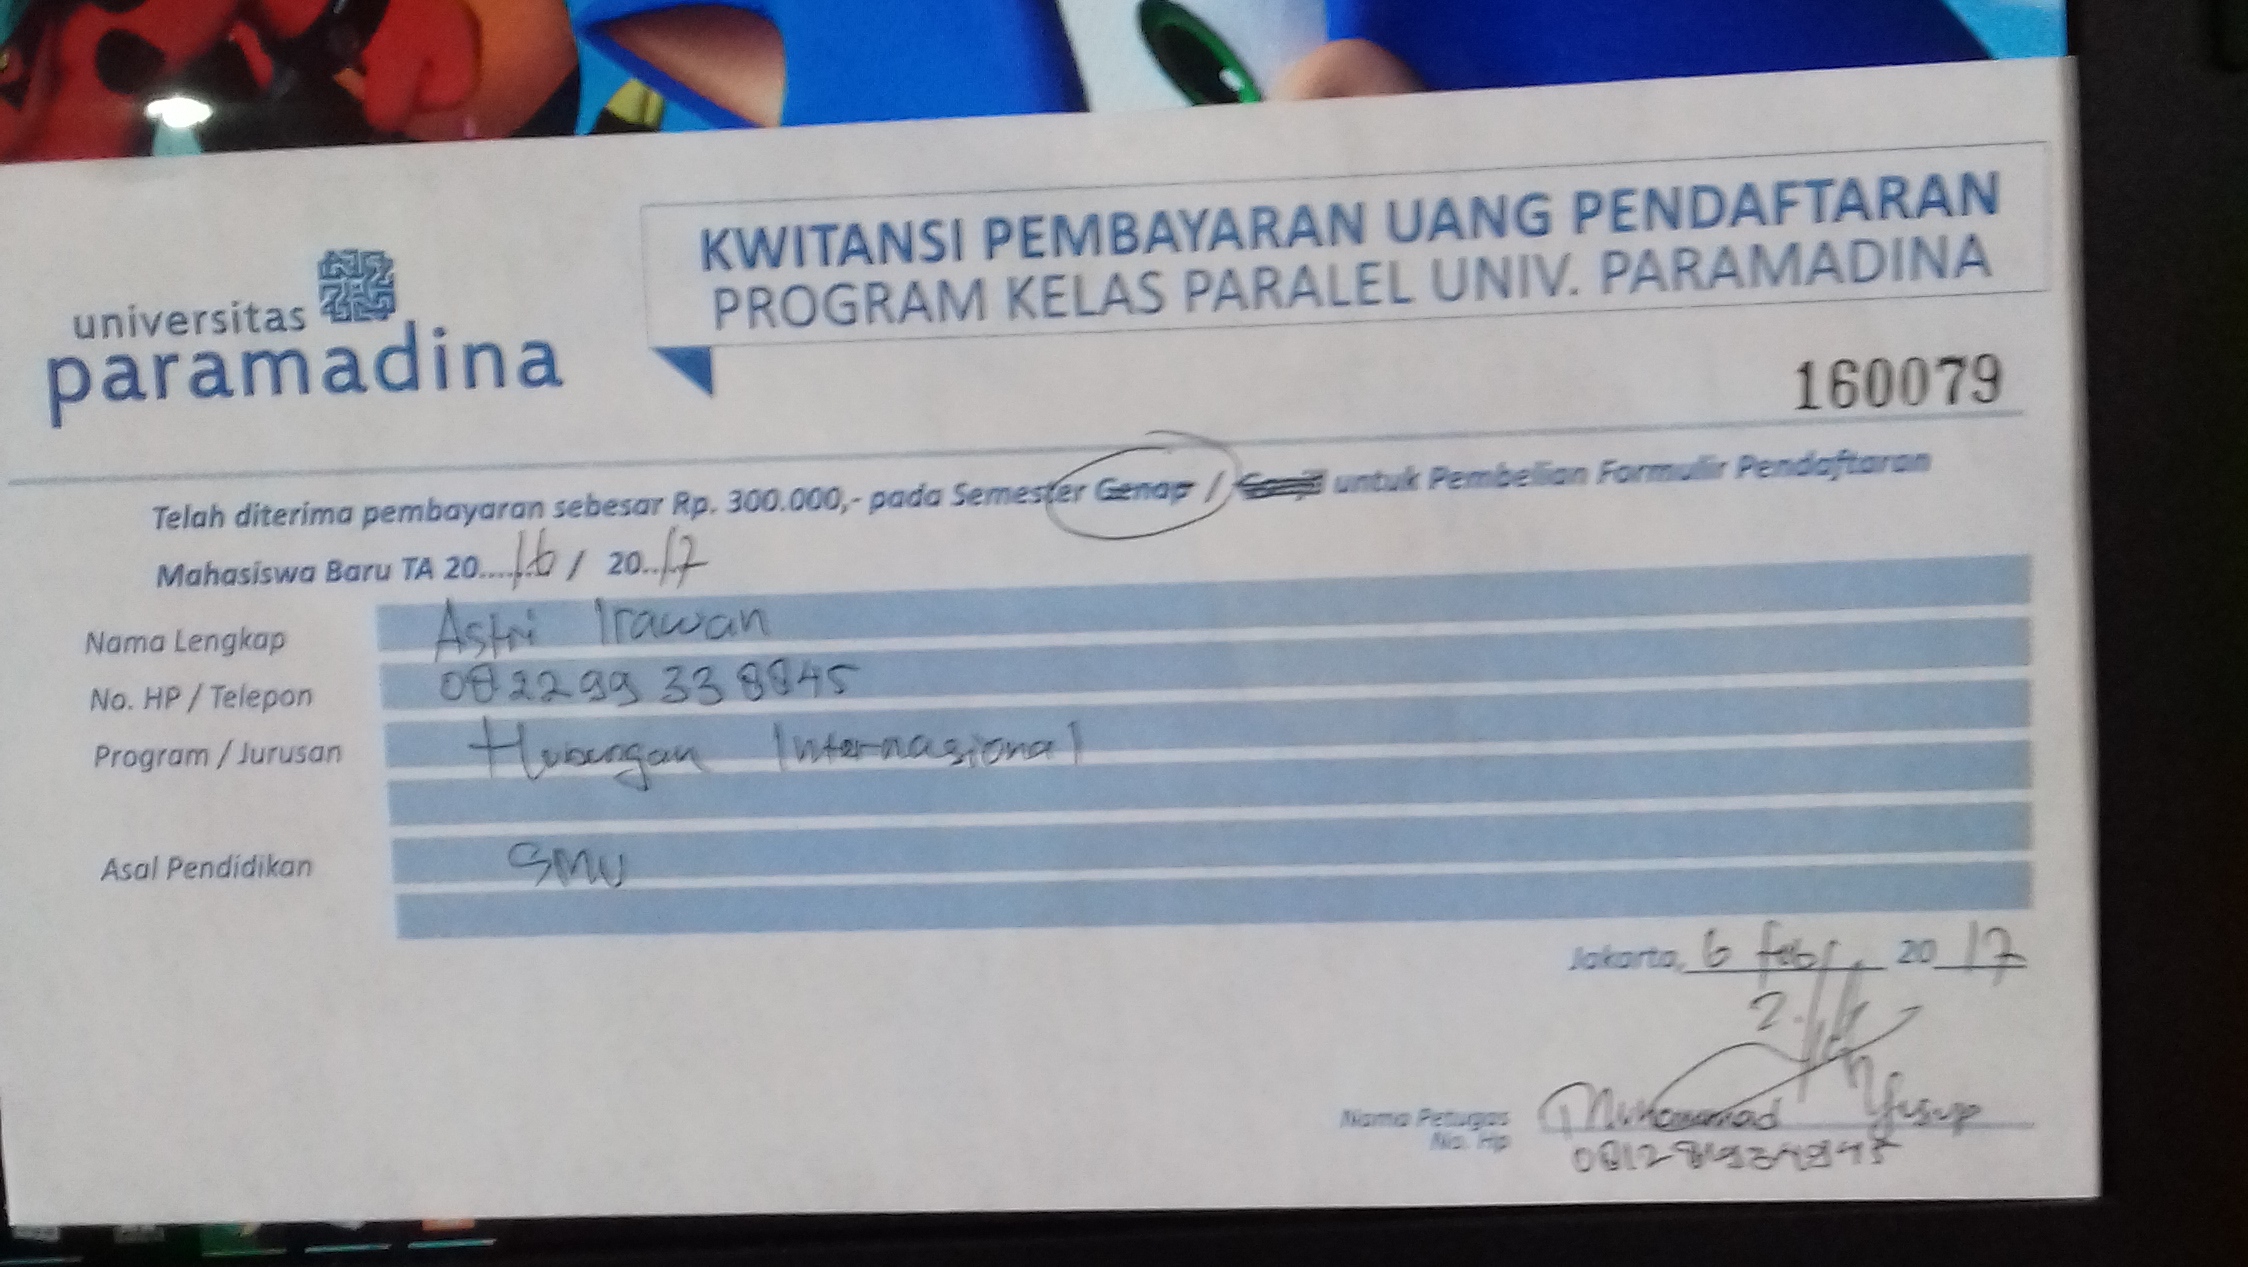 universitas
paramadina
KWITANSI PEMBAYARAN UANG PENDAFTARAN
PROGRAM KELAS PARALEL UNIV. PARAMADINA
1600079
Telah diterima pembayaran sebesar Rp. 300.000,- pada Semester Genap / untuk Pembelian Formulir Pendaftaran
Mahasiswa Baru TA 20....16 / 20..17
Nama Lengkap Astri Irawan
No. HP / Telepon 0822 99 33 8845
Program / Jurusan Hubungan Internasional
Asal Pendidikan SMU
Jakarta, 6 feb 20 17
Nama Petugas Muhammad Yusup
No. Hp